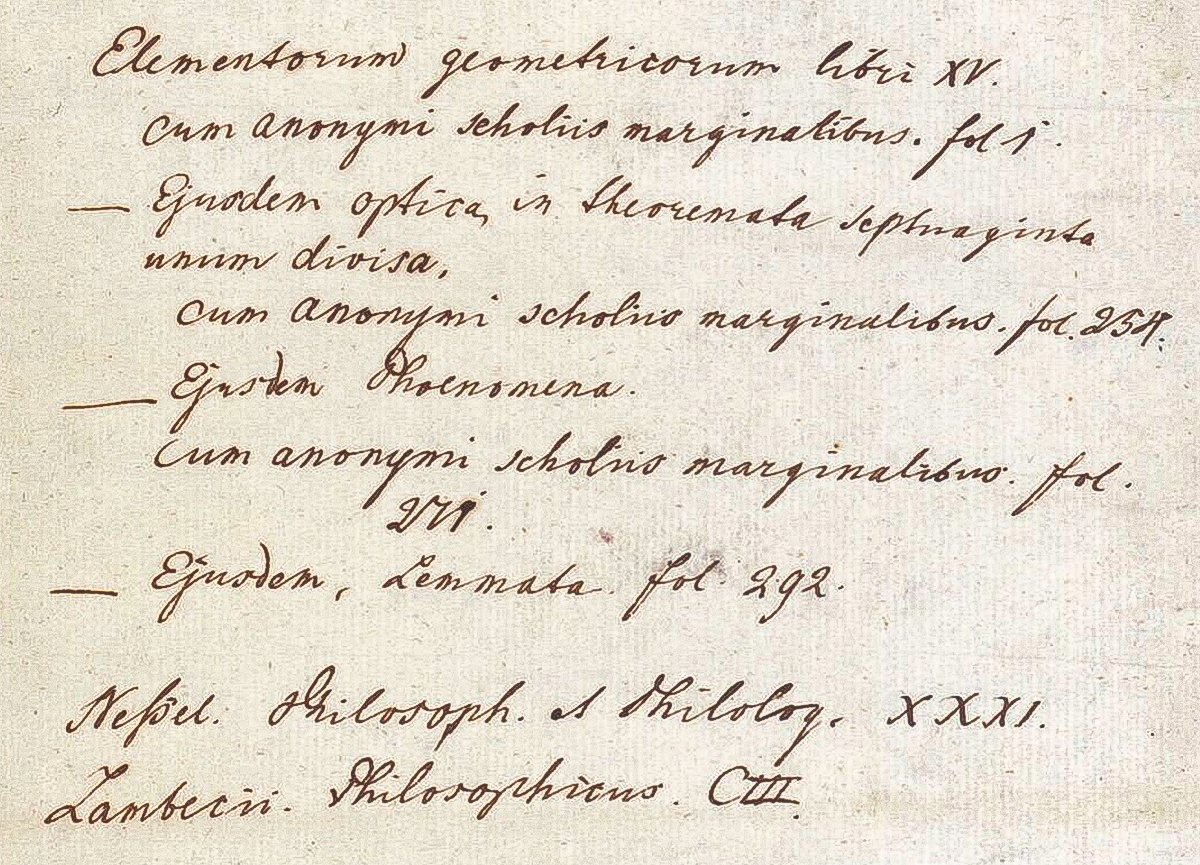 Elementorum geometricorum libri XV.
cum anonymi scholiis marginalibus. fol 1.
— Ejusdem optica, in theoremata septuaginta
unum divisa,
cum anonymi scholiis marginalibus. fol. 254.
— Ejusdem Phoenomena.
cum anonymi scholiis marginalibus. fol.
271.
— Ejusdem, Lemmata. fol 292.
Neßel. Philosoph. et Philolog. XXXI.
Lambecii. Philosophicus. CIII.